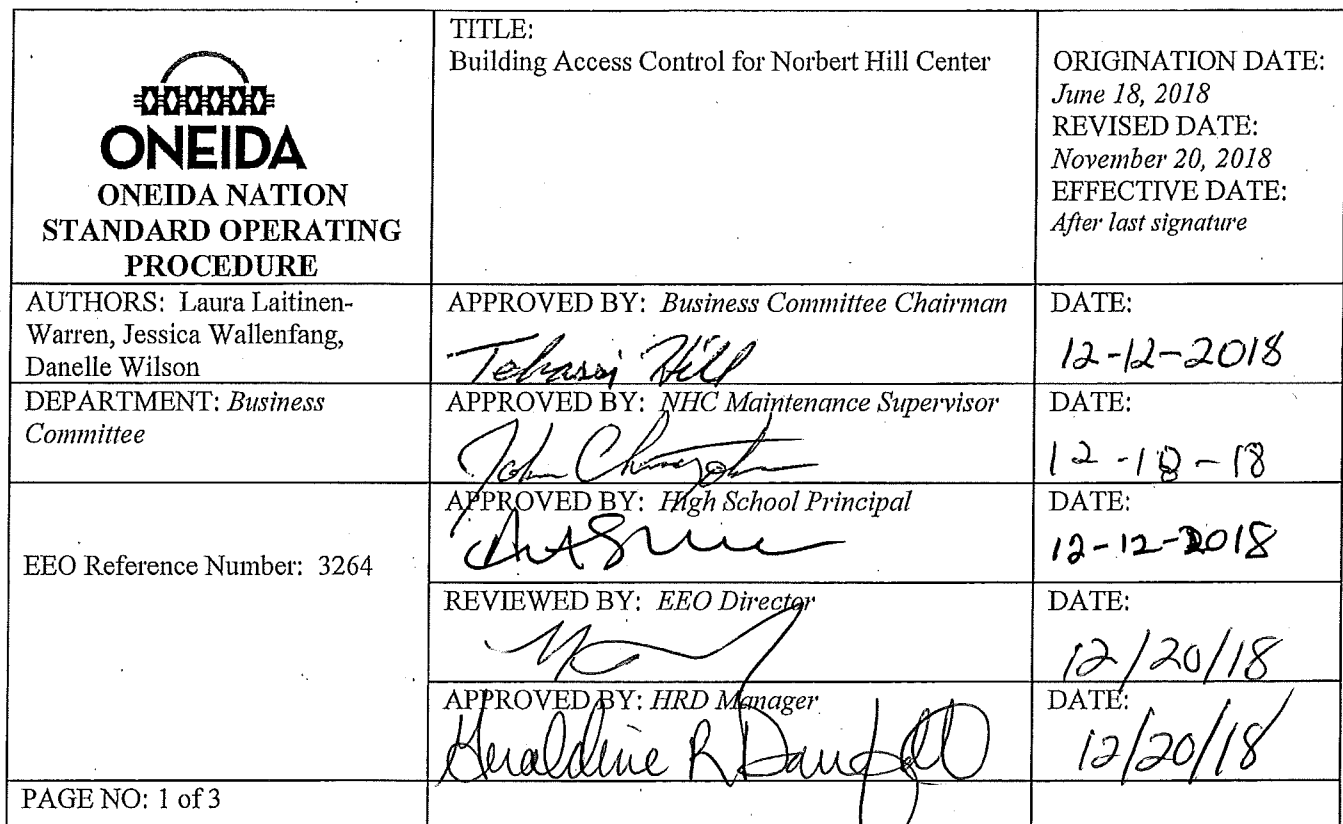 ONEIDA
ONEIDA NATION
STANDARD OPERATING
PROCEDURE
TITLE:
Building Access Control for Norbert Hill Center
ORIGINATION DATE:
June 18, 2018
REVISED DATE:
November 20, 2018
EFFECTIVE DATE:
After last signature
AUTHORS: Laura Laitinen-
Warren, Jessica Wallenfang,
Danelle Wilson
APPROVED BY: Business Committee Chairman
Tehassi Hill
DATE:
12-12-2018
DEPARTMENT: Business
Committee
APPROVED BY: NHC Maintenance Supervisor
John
DATE:
12-18-18
EEO Reference Number: 3264
APPROVED BY: High School Principal
DATE:
12-12-2018
REVIEWED BY: EEO Director
DATE:
12/20/18
APPROVED BY: HRD Manager
Geraldine R
DATE:
12/20/18
PAGE NO: 1 of 3